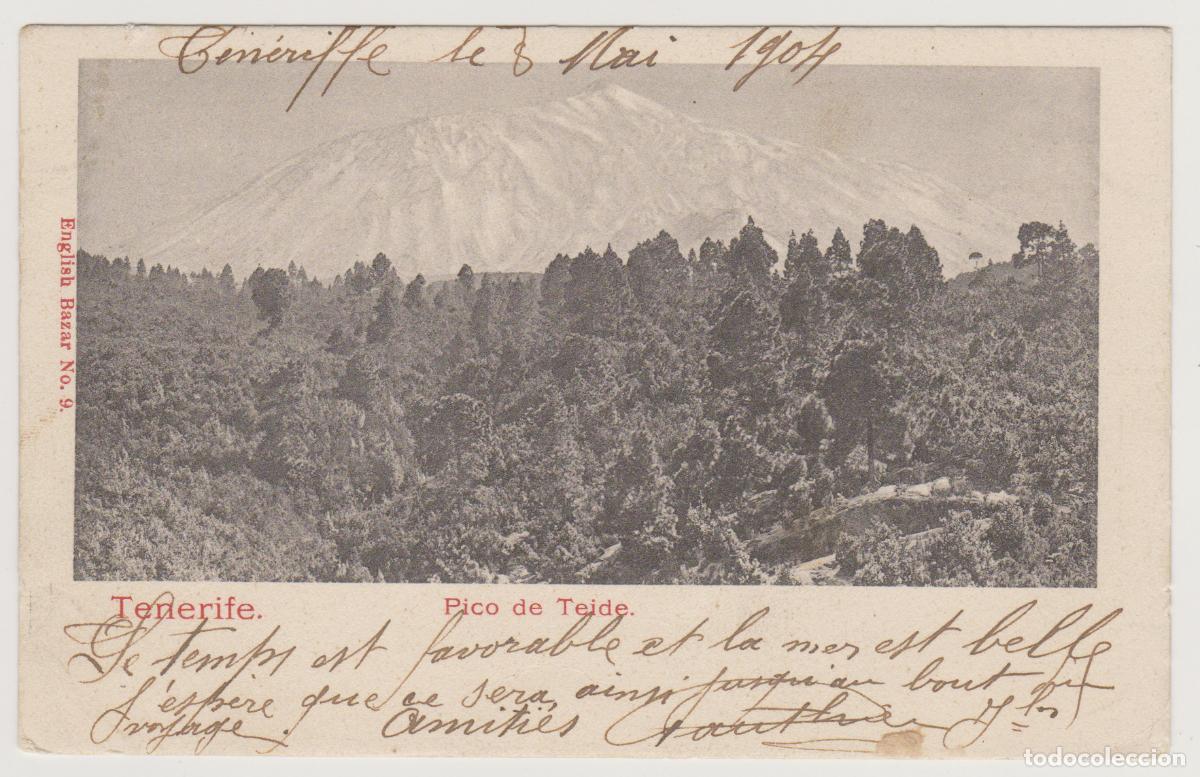 Ténériffe le 8 Mai 1904
English Bazar No. 9.
Tenerife.
Pico de Teide.
Le temps est favorable et la mer est belle
j'espère que ce sera, ainsi jusqu'au bout du
voyage. Amitiés
todocoleccion